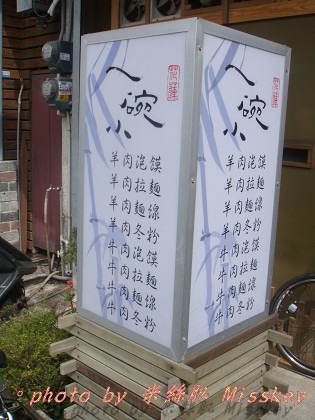 一碗小
羊肉泡饃
羊肉拉麵
羊肉麵線
羊肉冬粉
牛肉泡饃
牛肉拉麵
牛肉麵線
牛肉冬粉
一碗小
羊肉泡饃
羊肉拉麵
羊肉麵線
羊肉冬粉
牛肉泡饃
牛肉拉麵
牛肉麵線
牛肉冬粉
photo by 米絲肌 Misskey